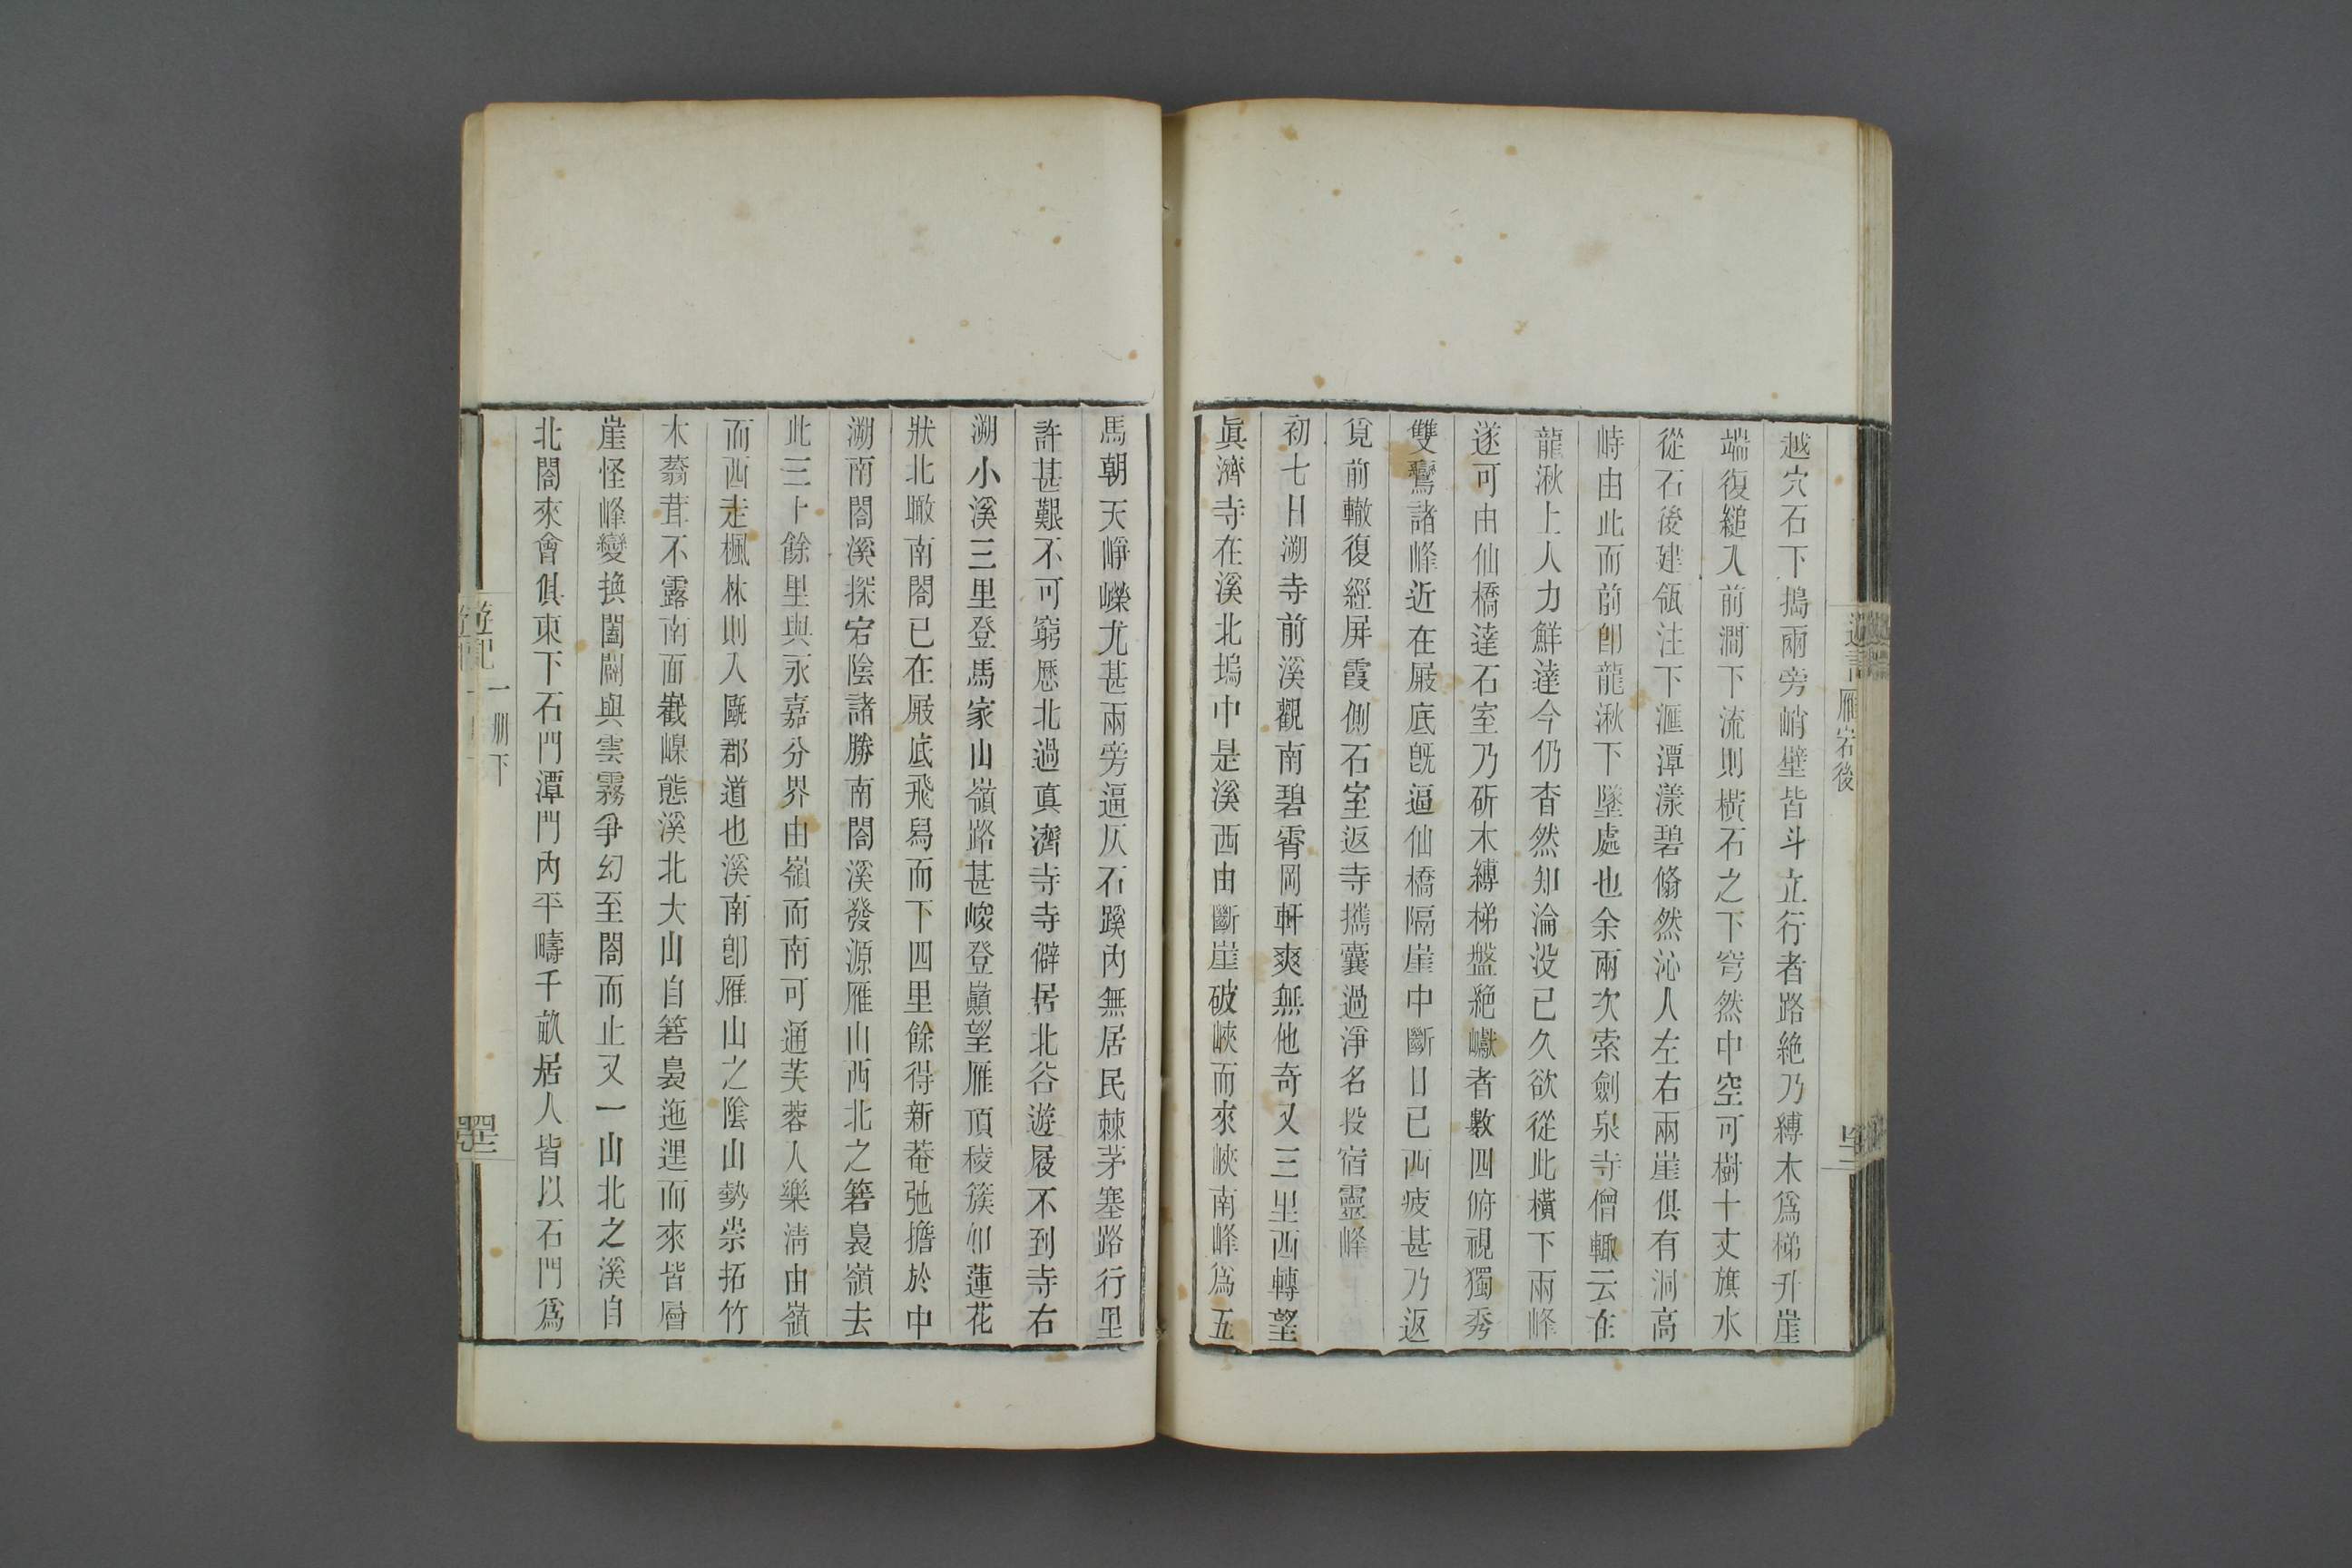 雁宕後
越穴石下搗兩旁峭壁皆斗立行者路絶乃縛木爲梯升崖
端復縋入前澗下流則橫石之下穹然中空可樹十丈旗水
從石後建瓴注下滙潭漾碧翛然沁人左右兩崖俱有洞高
峙由此而前卽龍湫下墜處也余兩次索劍泉寺僧輙云在
龍湫上人力鮮達今仍杳然知淪没已久欲從此橫下兩峰
遂可由仙橋達石室乃斫木縛梯盤絶巘者數四俯視獨秀
雙鸞諸峰近在屐底旣逼仙橋隔崖中斷日已西疲甚乃返
覓前轍復經屏霞側石室返寺攜囊過淨名投宿靈峰
初七日溯寺前溪觀南碧霄岡軒爽無他奇又三里西轉望
眞濟寺在溪北塢中是溪西由斷崖破峽而來峽南峰爲五
馬朝天崢嶸尤甚兩旁逼仄石蹊內無居民棘茅塞路行里
許甚艱不可窮歷北過真濟寺寺僻居北谷遊屐不到寺右
溯小溪三里登馬家山嶺路甚峻登巔望雁頂稜簇如蓮花
狀北瞰南閤已在屐底飛舄而下四里餘得新菴弛擔於中
溯南閤溪探宕陰諸勝南閤溪發源雁山西北之箬裊嶺去
此三十餘里與永嘉分界由嶺而南可通芙蓉入樂淸由嶺
而西走楓林則入甌郡道也溪南卽雁山之陰山勢崇拓竹
木蓊茸不露南面巀嵲態溪北大山自箬裊迤逦而來皆層
崖怪峰變換闔闢與雲霧爭幻至閤而止又一山北之溪自
北閤來會俱東下石門潭門內平疇千畝居人皆以石門爲
遊記
一册下